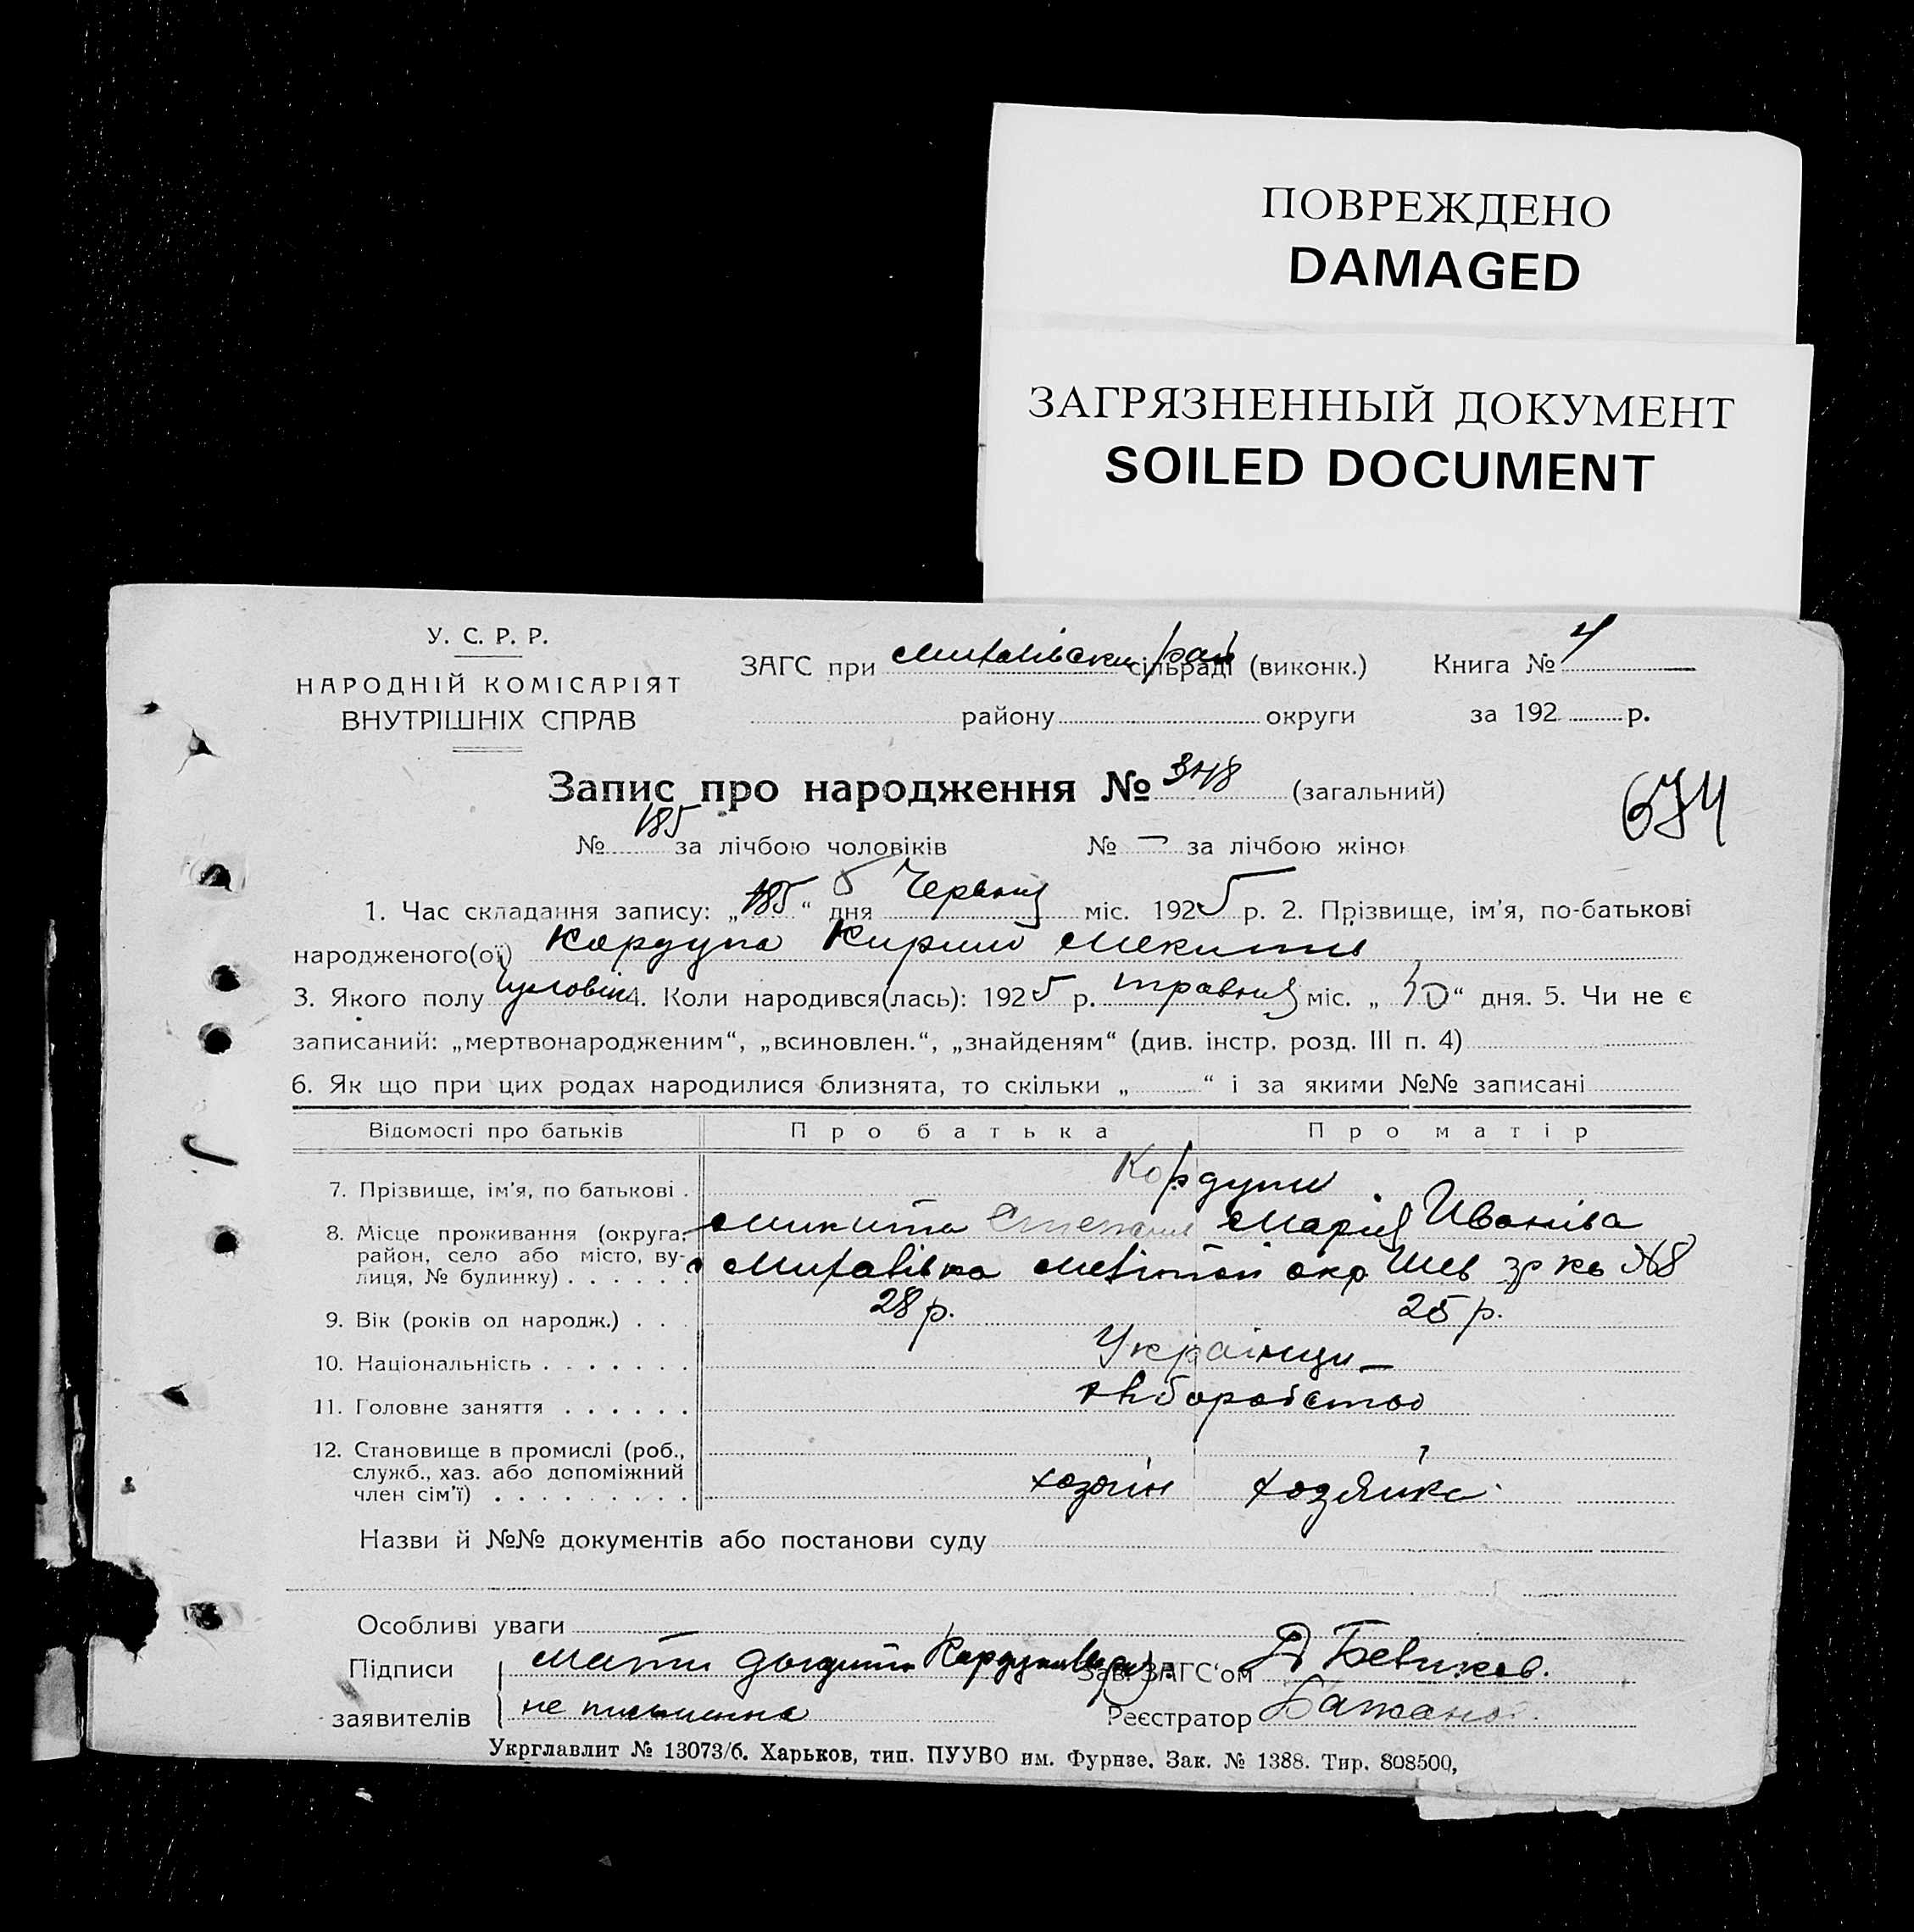 ПОВРЕЖДЕНО
DAMAGED
ЗАГРЯЗНЕННЫЙ ДОКУМЕНТ
SOILED DOCUMENT
У. С. Р. Р.
НАРОДНІЙ КОМІСАРІЯТ
ВНУТРІШНІХ СПРАВ
ЗАГС при сільраді (виконк.) Книга № 4
району округи за 192 р.
Запис про народження № 348 (загальний)
674
№ 185 за лічбою чоловіків № — за лічбою жінок
1. Час складання запису: „ “ 5 дня Червня міс. 1925 р. 2. Прізвище, ім'я, по-батькові
народженого(ої) Кордупа Кирило Микитів
3. Якого полу 4. Коли народився(лась): 1925 р. травня міс. „30“ дня. 5. Чи не є
записаний: „мертвонародженим“, „всиновлен.“, „знайденям“ (див. інстр. розд. III п. 4)
6. Як що при цих родах народилися близнята, то скільки „ “ і за якими №№ записані
Відомості про батьків Про батька Про матір
7. Прізвище, ім'я, по батькові . Кордупи
Микита Степанів Марія Иванівна
8. Місце проживання (округа, район, село або місто, вулиця, № будинку) . . . . . . окр. №8
9. Вік (років од народж.) . . . 28 р. 25 р.
10. Національність . . . . . . . Українци
11. Головне заняття . . . . . . хліборобство
12. Становище в промислі (роб., служб., хаз. або допоміжний член сім'ї) . . . . . . . . . хозяїн хозяйка
Назви й №№ документів або постанови суду
Особливі уваги
Підписи мати дитини Кордупа Марія Зав. ЗАГС'ом
заявителів не письменна Реєстратор
Укрглавлит № 13073/б. Харьков, тип. ПУУВО им. Фурнзе. Зак. № 1388. Тир. 808500,